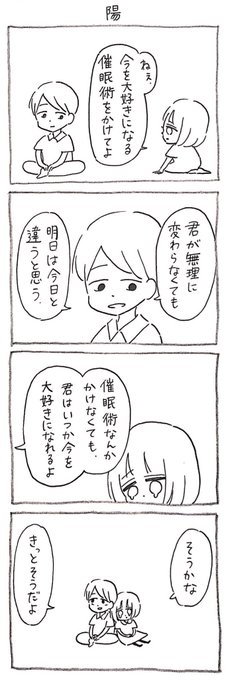 陽
ねぇ、
今を大好きになる
催眠術をかけてよ
君が無理に
変わらなくても
明日は今日と
違うと思う。
催眠術なんか
かけなくても、
君はいつか今を
大好きになれるよ
そうかな
きっとそうだよ